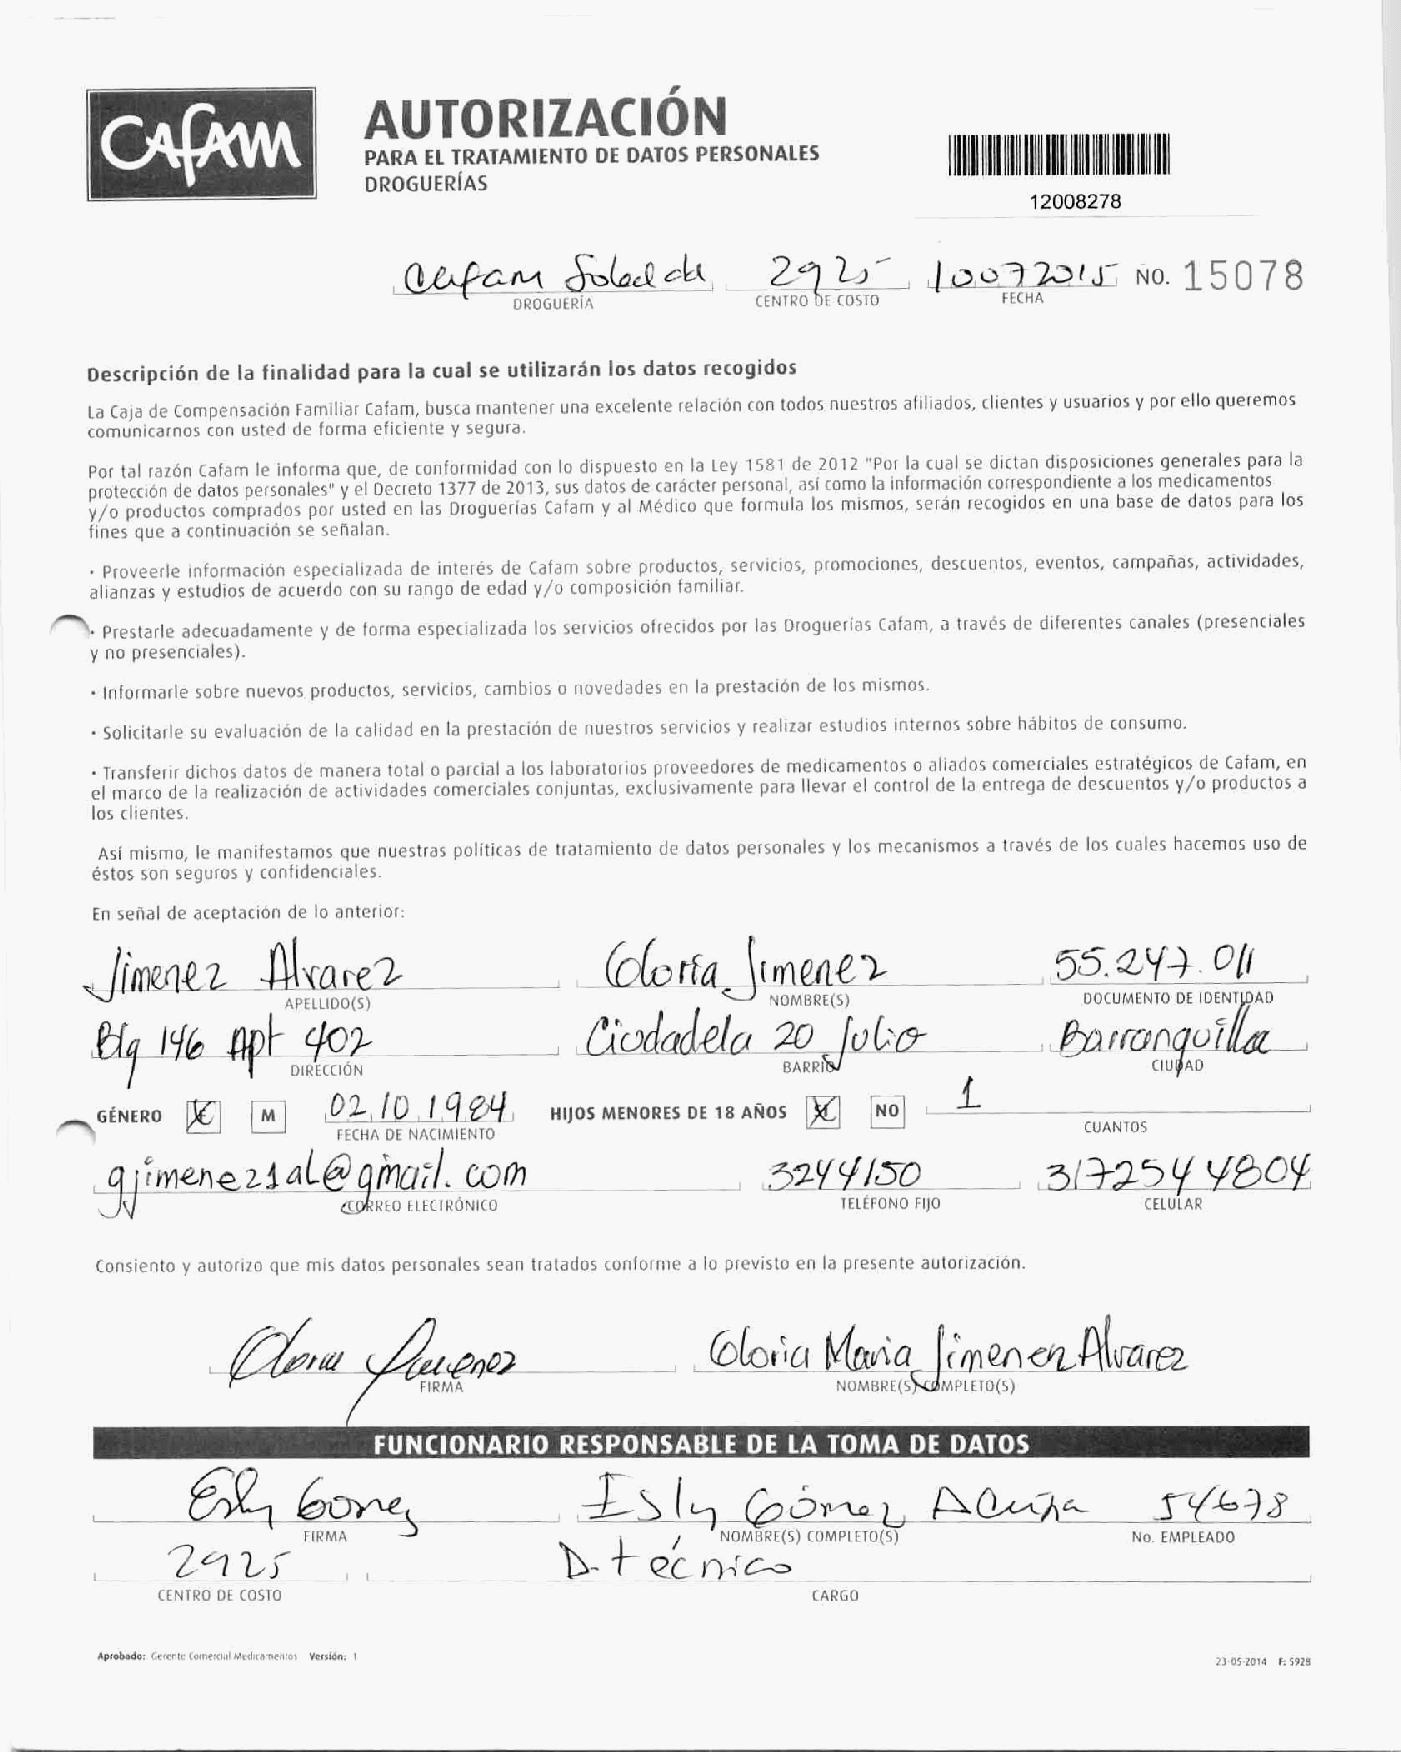 CAfAM
AUTORIZACIÓN
PARA EL TRATAMIENTO DE DATOS PERSONALES
DROGUERÍAS
12008278
Cafam Soledad 2925 10072015 NO. 15078
DROGUERÍA CENTRO DE COSTO FECHA
Descripción de la finalidad para la cual se utilizarán los datos recogidos
La Caja de Compensación Familiar Cafam, busca mantener una excelente relación con todos nuestros afiliados, clientes y usuarios y por ello queremos
comunicarnos con usted de forma eficiente y segura.
Por tal razón Cafam le informa que, de conformidad con lo dispuesto en la Ley 1581 de 2012 "Por la cual se dictan disposiciones generales para la
protección de datos personales" y el Decreto 1377 de 2013, sus datos de carácter personal, así como la información correspondiente a los medicamentos
y/o productos comprados por usted en las Droguerías Cafam y al Médico que formula los mismos, serán recogidos en una base de datos para los
fines que a continuación se señalan.
· Proveerle información especializada de interés de Cafam sobre productos, servicios, promociones, descuentos, eventos, campañas, actividades,
alianzas y estudios de acuerdo con su rango de edad y/o composición familiar.
· Prestarle adecuadamente y de forma especializada los servicios ofrecidos por las Droguerías Cafam, a través de diferentes canales (presenciales
y no presenciales).
· Informarle sobre nuevos productos, servicios, cambios o novedades en la prestación de los mismos.
· Solicitarle su evaluación de la calidad en la prestación de nuestros servicios y realizar estudios internos sobre hábitos de consumo.
· Transferir dichos datos de manera total o parcial a los laboratorios proveedores de medicamentos o aliados comerciales estratégicos de Cafam, en
el marco de la realización de actividades comerciales conjuntas, exclusivamente para llevar el control de la entrega de descuentos y/o productos a
los clientes.
Así mismo, le manifestamos que nuestras políticas de tratamiento de datos personales y los mecanismos a través de los cuales hacemos uso de
éstos son seguros y confidenciales.
En señal de aceptación de lo anterior:
Jimenez Alvarez Gloria Jimenez 55.247.011
APELLIDO(S) NOMBRE(S) DOCUMENTO DE IDENTIDAD
Blq 146 Apt 402 Ciudadela 20 Julio Barranquilla
DIRECCIÓN BARRIO CIUDAD
GÉNERO M 02.10.1984 HIJOS MENORES DE 18 AÑOS NO 1
FECHA DE NACIMIENTO CUANTOS
gjimenez1al@gmail.com 3244150 3172544804
CORREO ELECTRÓNICO TELÉFONO FIJO CELULAR
Consiento y autorizo que mis datos personales sean tratados conforme a lo previsto en la presente autorización.
Gloria Jimenez Gloria Maria Jimenez Alvarez
FIRMA NOMBRE(S) COMPLETO(S)
FUNCIONARIO RESPONSABLE DE LA TOMA DE DATOS
Esly Gomez Isly Gómez Acuña 54678
FIRMA NOMBRE(S) COMPLETO(S) No. EMPLEADO
2925 D. técnico
CENTRO DE COSTO CARGO
Aprobado: Gerente Comercial Medicamentos Versión: 1
23-05-2014 F: 5928